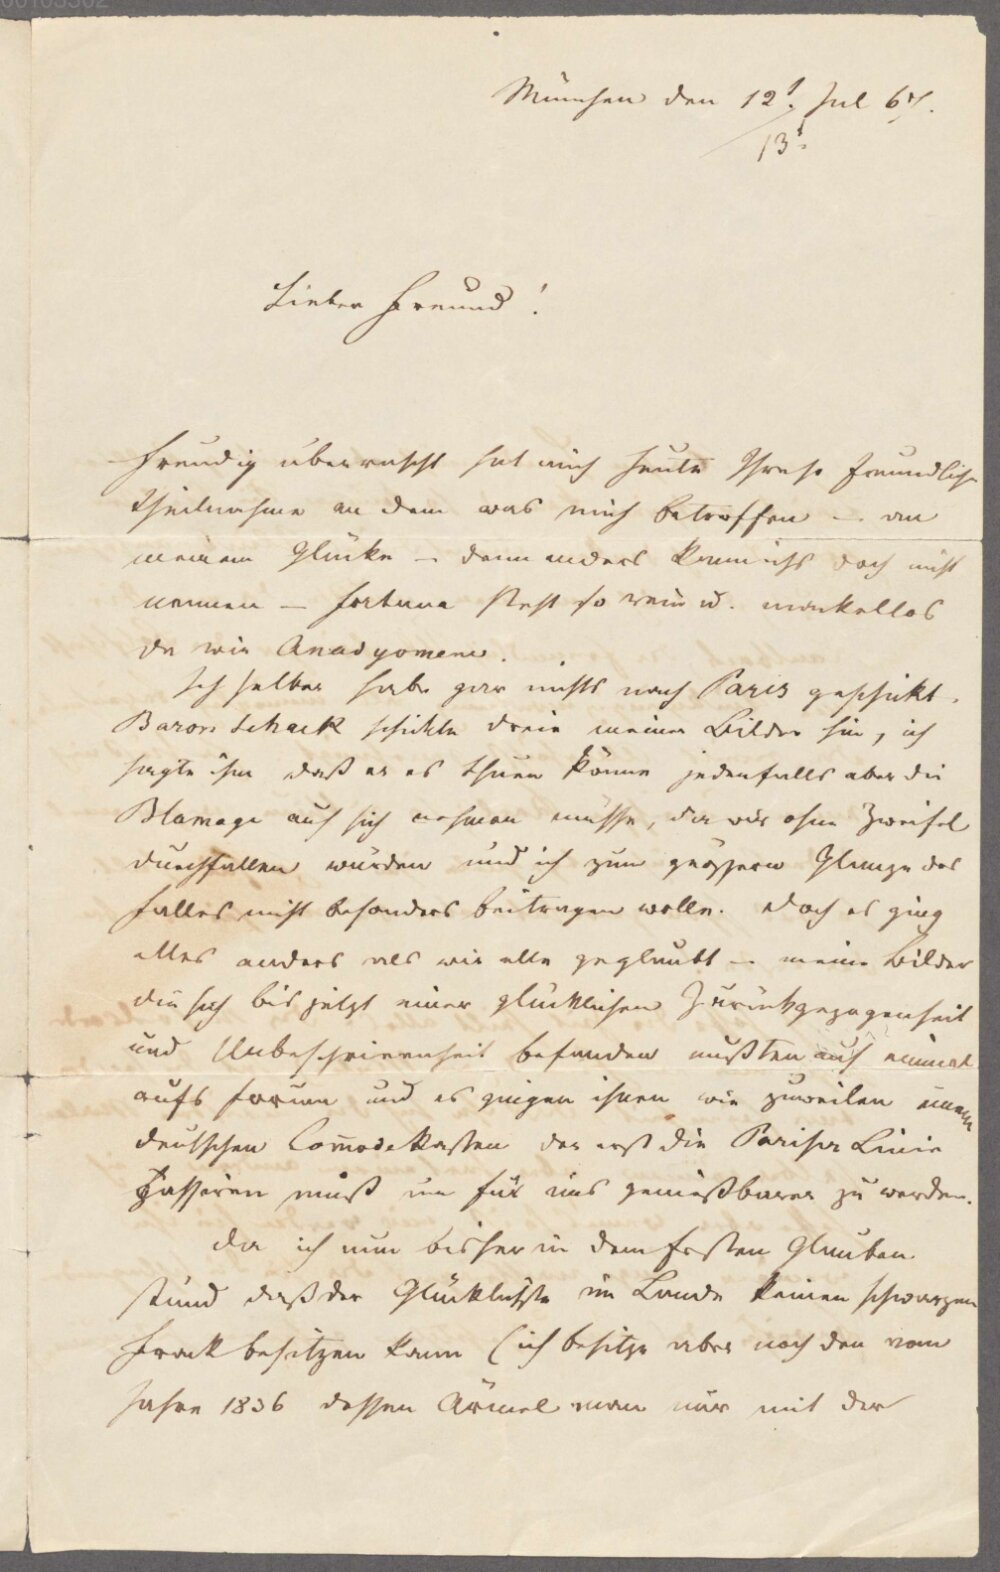 München den 12t. Jul 67.
13t.
Lieber Freund!
Freudig überrascht hat mich heute Ihre freundliche
Theilnahme an dem was mich betroffen – an
meinem Glücke – denn anders kann ichs doch nicht
nennen – Fortuna steht so rein u. makellos
da wie Anadyomene.
Ich selber habe gar nichts nach Paris geschickt.
Baron Schack schickte drei meiner Bilder hin, ich
sagte ihm daß er es thuen könne jedenfalls aber die
Blamage auf sich nehmen müsse, da wir ohne Zweifel
durchfallen würden und ich zum größern Glanze des
Falles nicht besonders beitragen wolle. Doch es ging
alles anders als wir alle geglaubt – meine Bilder
die sich bis jetzt einer glücklichen Zurückgezogenheit
und Unbeschrieenheit befanden mußten auf einmal
aufs Forum und es gingen ihnen wie zuweilen einem
deutschen Comodekasten der erst die Pariser Linie
passiren muß um für uns genießbarer zu werden.
Da ich nun bisher in dem festen Glauben
stund daß der Glücklichste im Lande keinen schwarzen
Frack besitzen kann (ich besitze aber noch den vom
Jahre 1836 dessen Ärmel man nur mit der